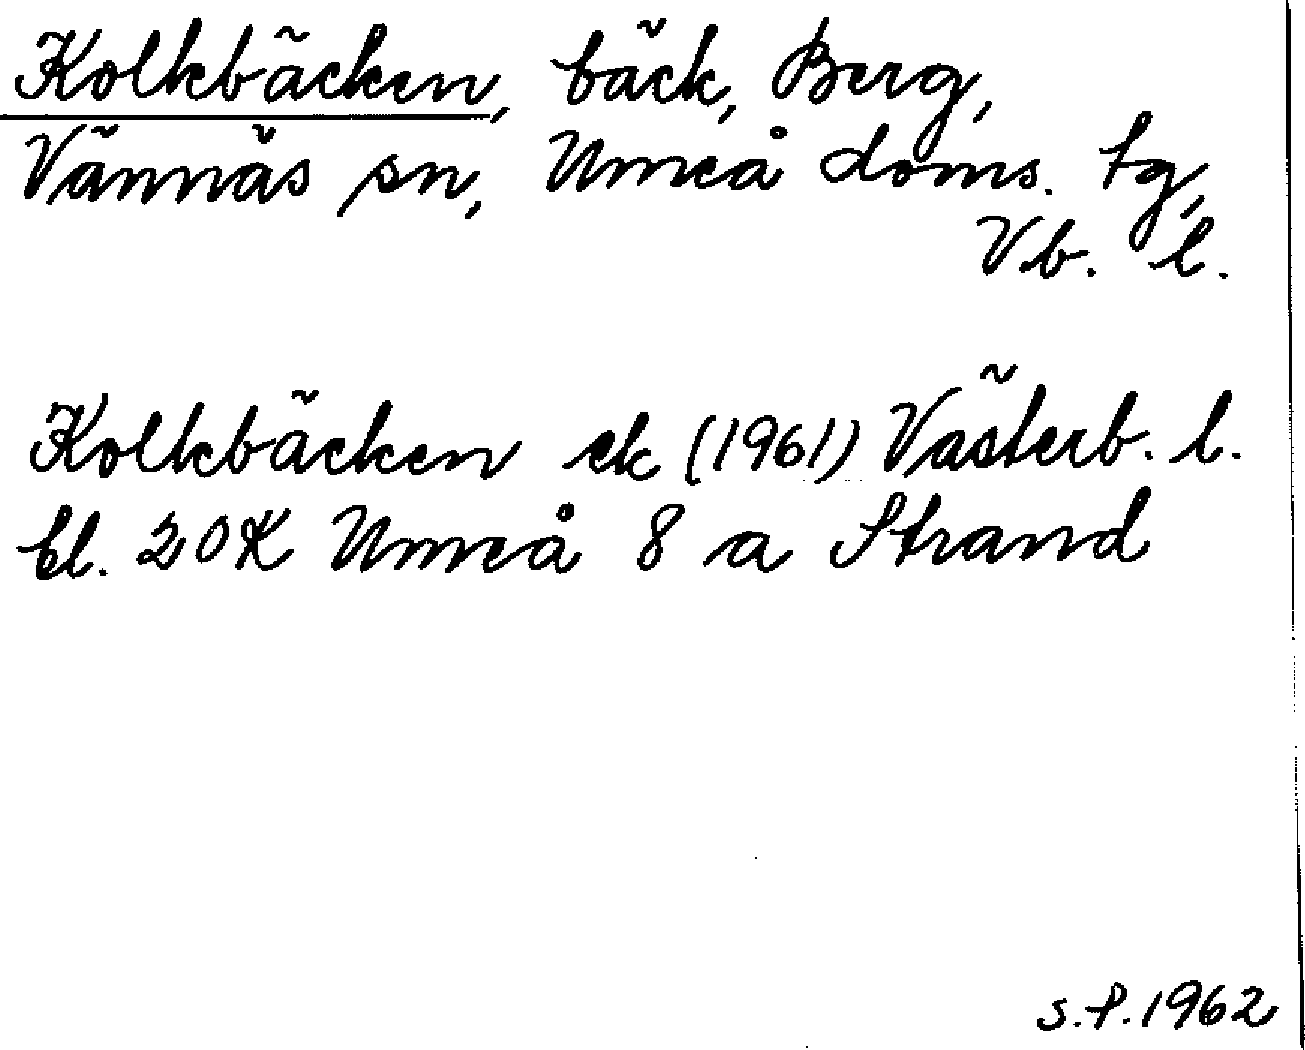 Kolkbäcken, bäck, Berg,
Vännäs sn, Umeå doms. tg,
Vb. l.
Kolkbäcken ek (1961) Västerb. l.
bl. 20K Umeå 8 a Strand
S.P. 1962